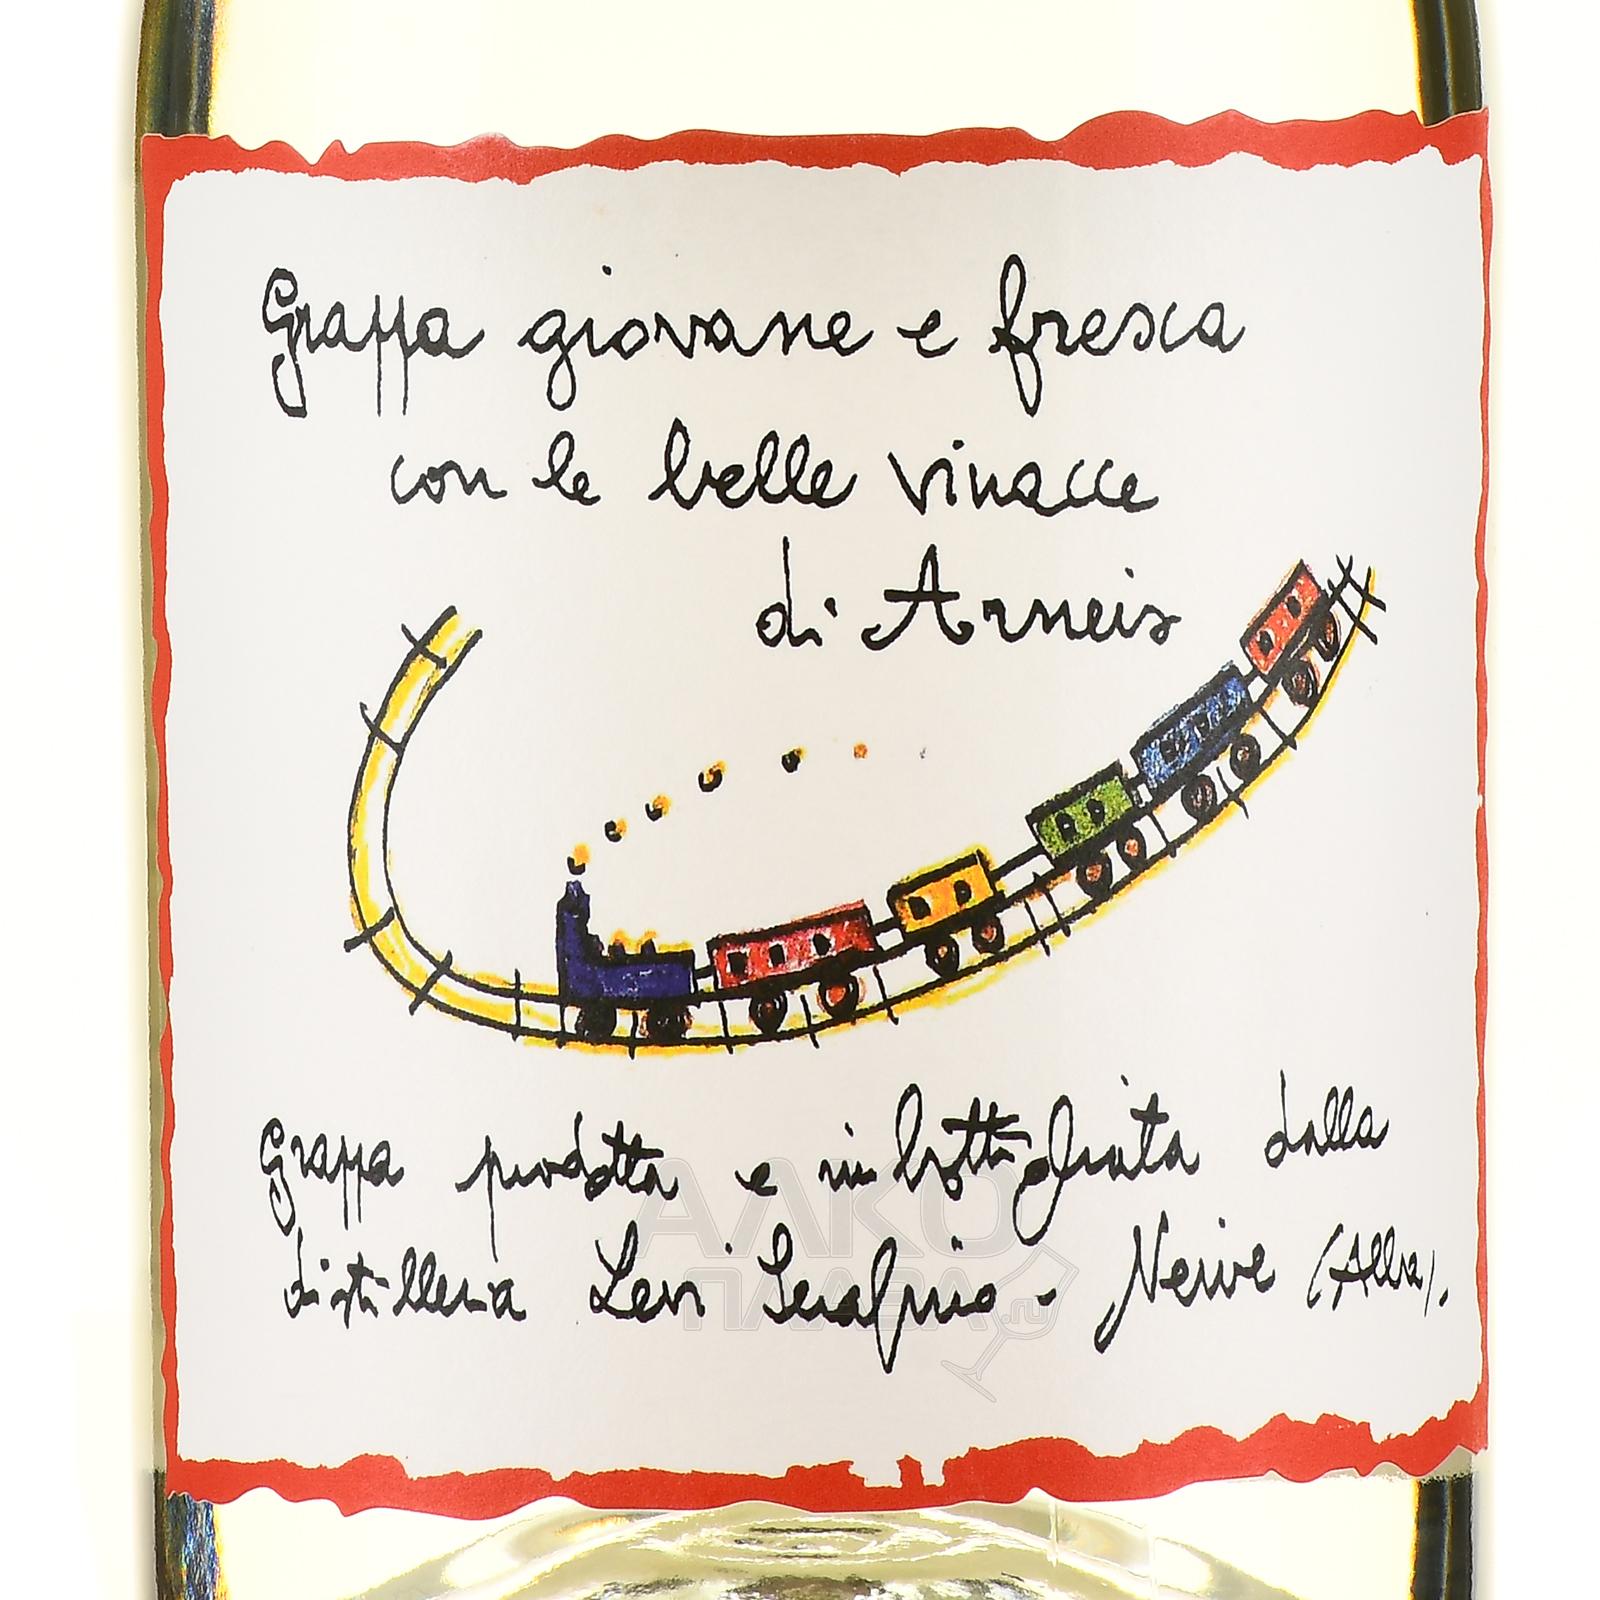 Grappa giovane e fresca
con le belle vinacce
di Arneis
Grappa prodotta e imbottigliata dalla
distilleria Levi Serafino - Neive (Alba).
АЛКО
ПЛАЗА.ru